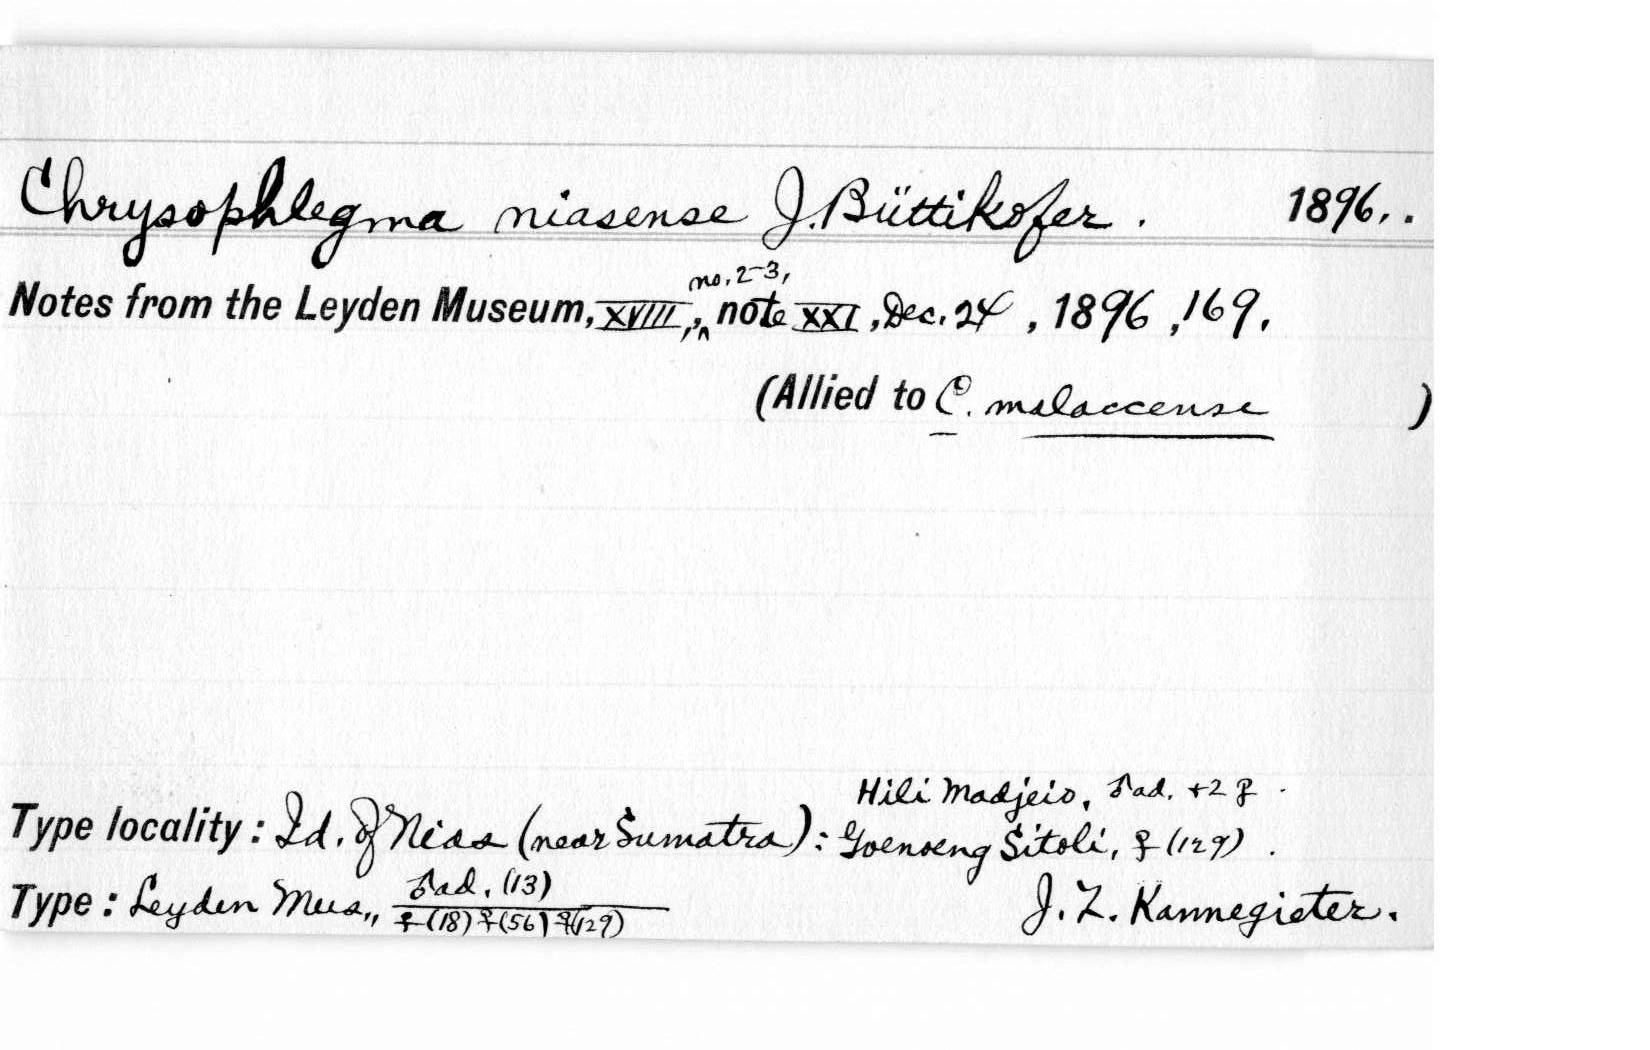 Chrysophlegma niasense J. Büttikofer. 1896..
Notes from the Leyden Museum, XVIII, no. 2-3, note XXI, Dec. 24, 1896, 169.
(Allied to C. malaccense )
Hili Madjeio, ♂ ad. + 2 ♀.
Type locality: Id. of Nias (near Sumatra): Goenoeng Sitoli, ♀ (129).
Type: Leyden Mus., ♂ ad. (13)
♀ (18) ♀ (56) ♀ (129)
J. Z. Kannegieter.